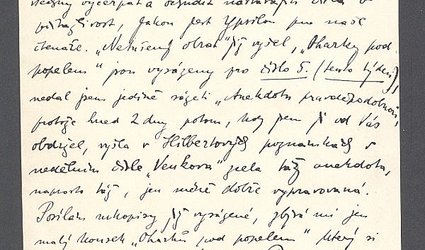 všechny vyčerpat a
jakou jest Ypsilon pro naše
čtenáře. „Netušený obraz" již vyšel, „Oharky pod
popelem" jsou vysázeny pro číslo 5. (tento týden),
nedal jsem jedině sázeti „Anekdotu pravděpodobnou,
protože hned 2 dny potom, kdy jsem ji od Vás
obdržel, vyšla v Hilbertových poznámkách v
nedělním čísle „Venkova" celá táž anekdota,
naprosto táž, jen méně dobře vypravovaná.
Posílám rukopisy již vysázené, zbývá mi jen
malý kousek „Oharků pod popelem", který si